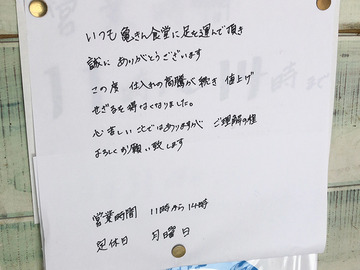 いつも亀きん食堂に足を運んで頂き
誠にありがとうございます
この度 仕入れの高騰が続き 値上げ
せざるを得なくなりました。
心苦しいことではありますが ご理解の程
よろしくお願い致します
営業時間 11時から14時
定休日 月曜日